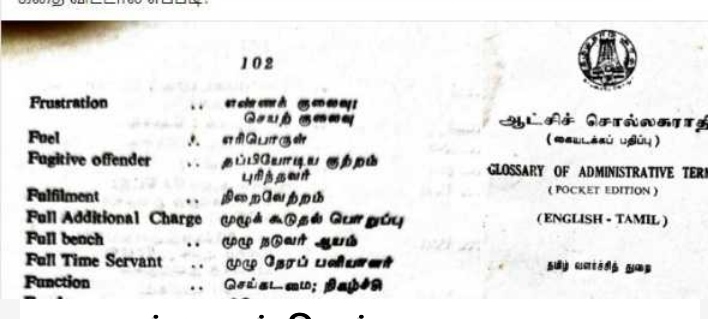 102
Frustration .. எண்ணக் குலைவு;
செயற் குலைவு
Fuel .. எரிபொருள்
Fugitive offender .. தப்பியோடிய குற்றம்
புரிந்தவர்
Fulfilment .. நிறைவேற்றம்
Full Additional Charge முழுக் கூடுதல் பொறுப்பு
Full bench .. முழு நடுவர் ஆயம்
Full Time Servant .. முழு நேரப் பணியாளர்
Function .. செய்கடமை; நிகழ்ச்சி
ஆட்சிச் சொல்லகராதி
(கையடக்கப் பதிப்பு)
GLOSSARY OF ADMINISTRATIVE TERM
(POCKET EDITION)
(ENGLISH - TAMIL)
தமிழ் வளர்ச்சித் துறை